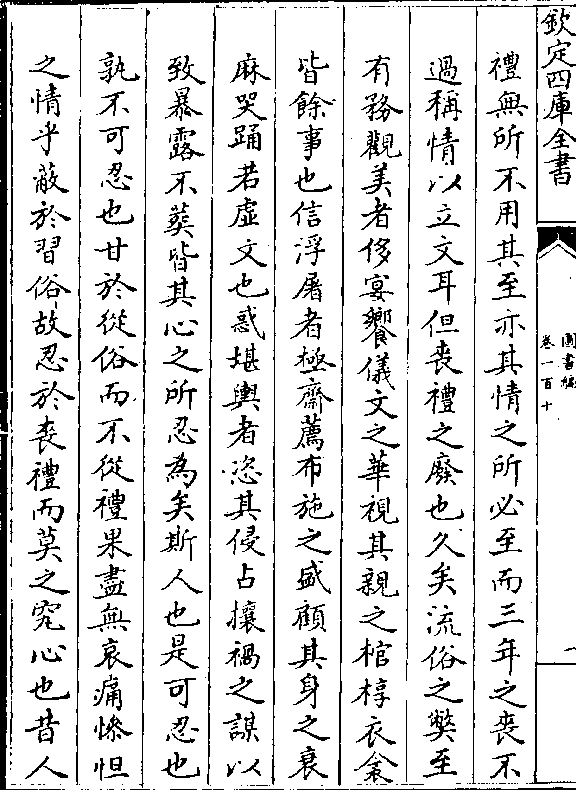 欽定四庫全書
圖書編
卷一百十
禮無所不用其至亦其情之所必至而三年之喪不
過稱情以立文耳但喪禮之廢也久矣流俗之弊至
有務觀美者侈宴饗儀文之華視其親之棺椁衣衾
皆餘事也信浮屠者極齋薦布施之盛顧其身之衰
麻哭踊若虛文也惑堪輿者恣其侵占攘禍之謀以
致暴露不葬皆其心之所忍為矣斯人也是可忍也
孰不可忍也甘於從俗而不從禮果盡無哀痛慘怛
之情乎敝於習俗故忍於喪禮而莫之究心也昔人